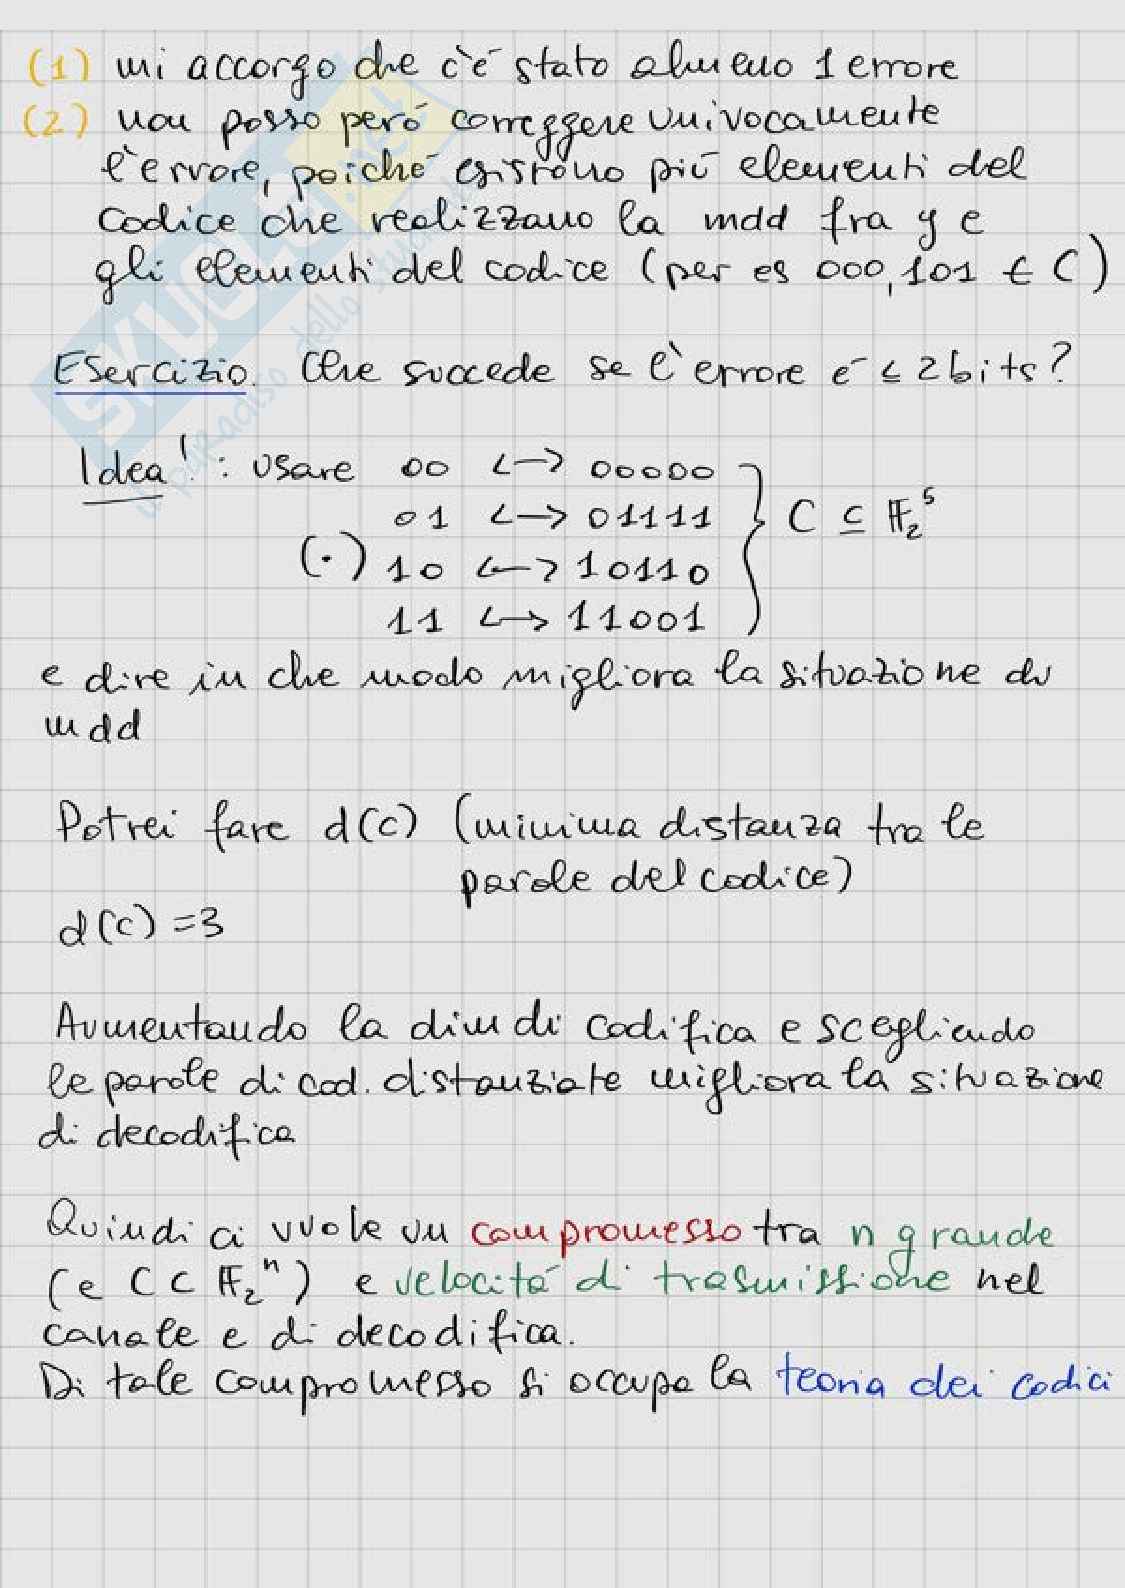 (1) mi accorgo che c'è stato almeno 1 errore
(2) non posso però correggere univocamente
l'errore, poiché esistono più elementi del
codice che realizzano la mdd fra y e
gli elementi del codice (per es 000,101 ∈ C)
Esercizio. Che succede se l'errore è ≤ 2 bits?
Idea!: usare 00 <-> 00000
01 <-> 01111
(·) 10 <-> 10110
11 <-> 11001
} C ⊆ 𝔽₂⁵
e dire in che modo migliora la situazione di
mdd
Potrei fare d(C) (minima distanza tra le
parole del codice)
d(C) = 3
Aumentando la dim di codifica e scegliendo
le parole di cod. distanziate migliora la situazione
di decodifica
Quindi ci vuole un compromesso tra n grande
(e C ⊂ 𝔽₂ⁿ) e velocità di trasmissione nel
canale e di decodifica.
Di tale compromesso si occupa la teoria dei codici
SKUOLA.net
il paradiso dello studente